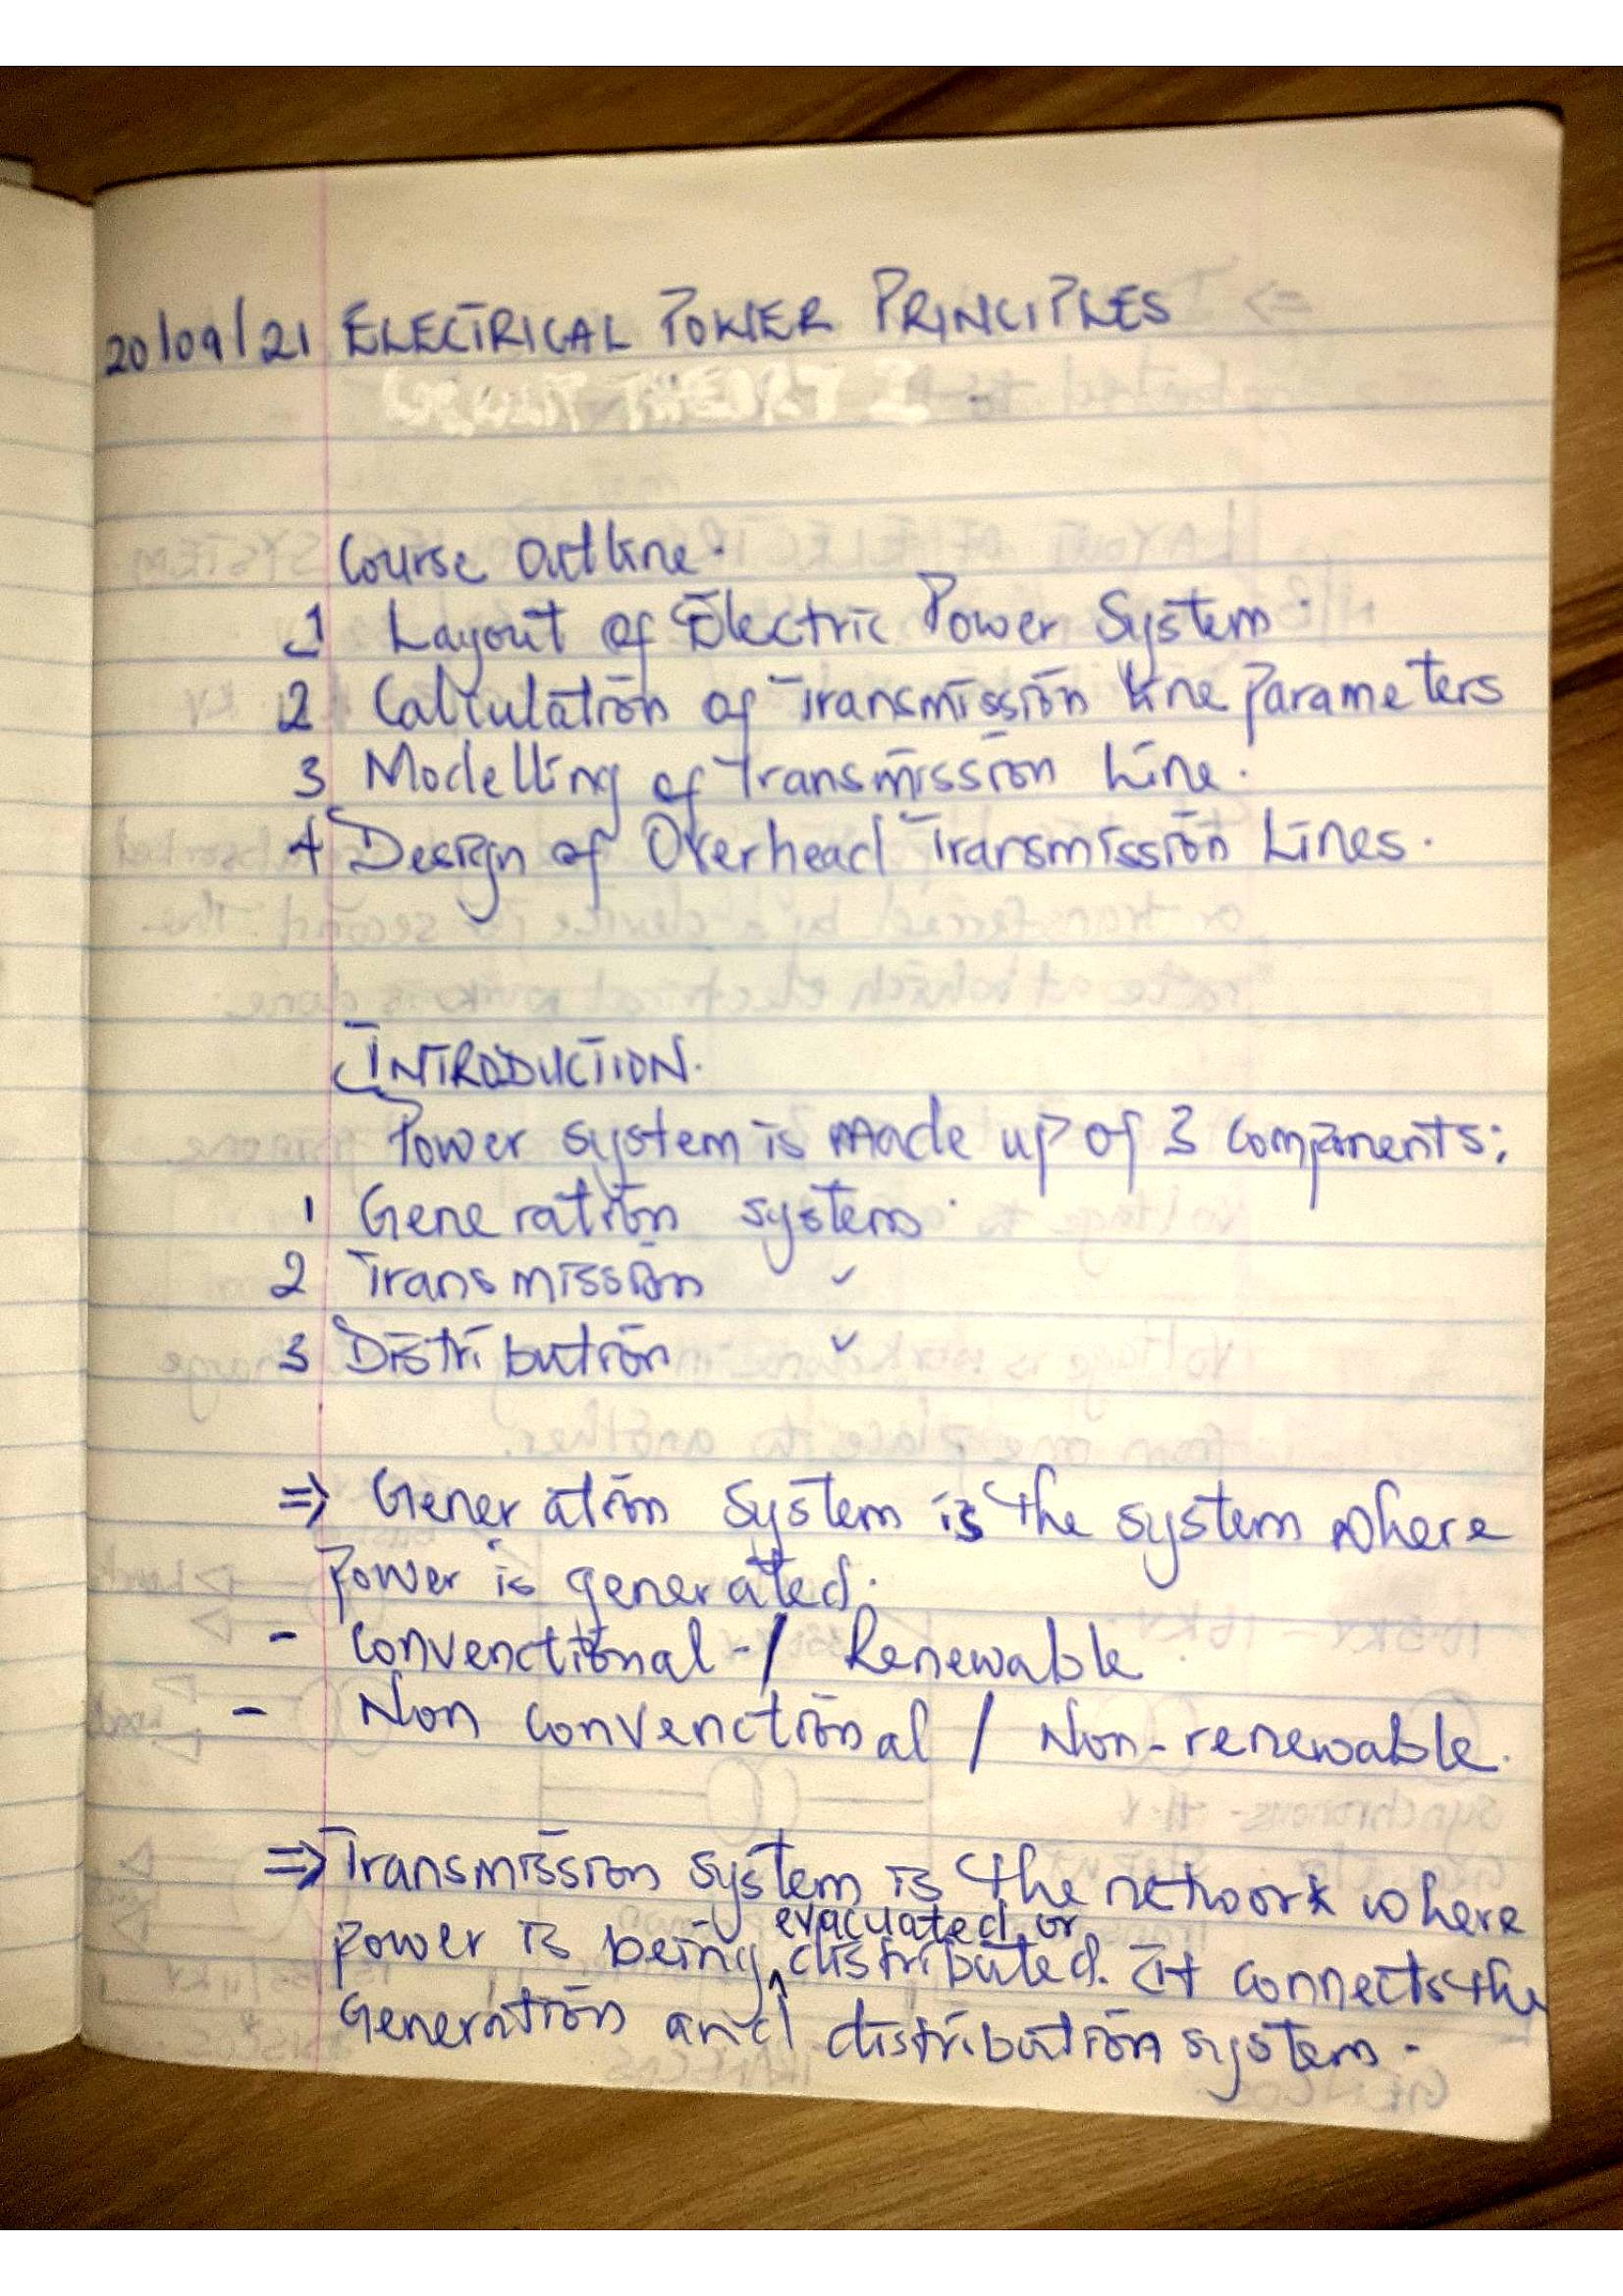 20/09/21 ELECTRICAL POWER PRINCIPLES
CIRCUIT THEORY I
Course Outline.
1 Layout of Electric Power System.
2 Calculation of Transmission Line Parameters
3 Modelling of Transmission Line.
4 Design of Overhead Transmission Lines.
INTRODUCTION.
Power system is made up of 3 components:
1 Generation system.
2 Transmission ✓
3 Distribution ✓
⇒ Generation system is the system where
power is generated.
- Convenctional -/ Renewable
- Non Convenctional / Non-renewable.
⇒ Transmission system is the network where
power is being ^ evacuated or distributed. It connects the
Generation and distribution system.